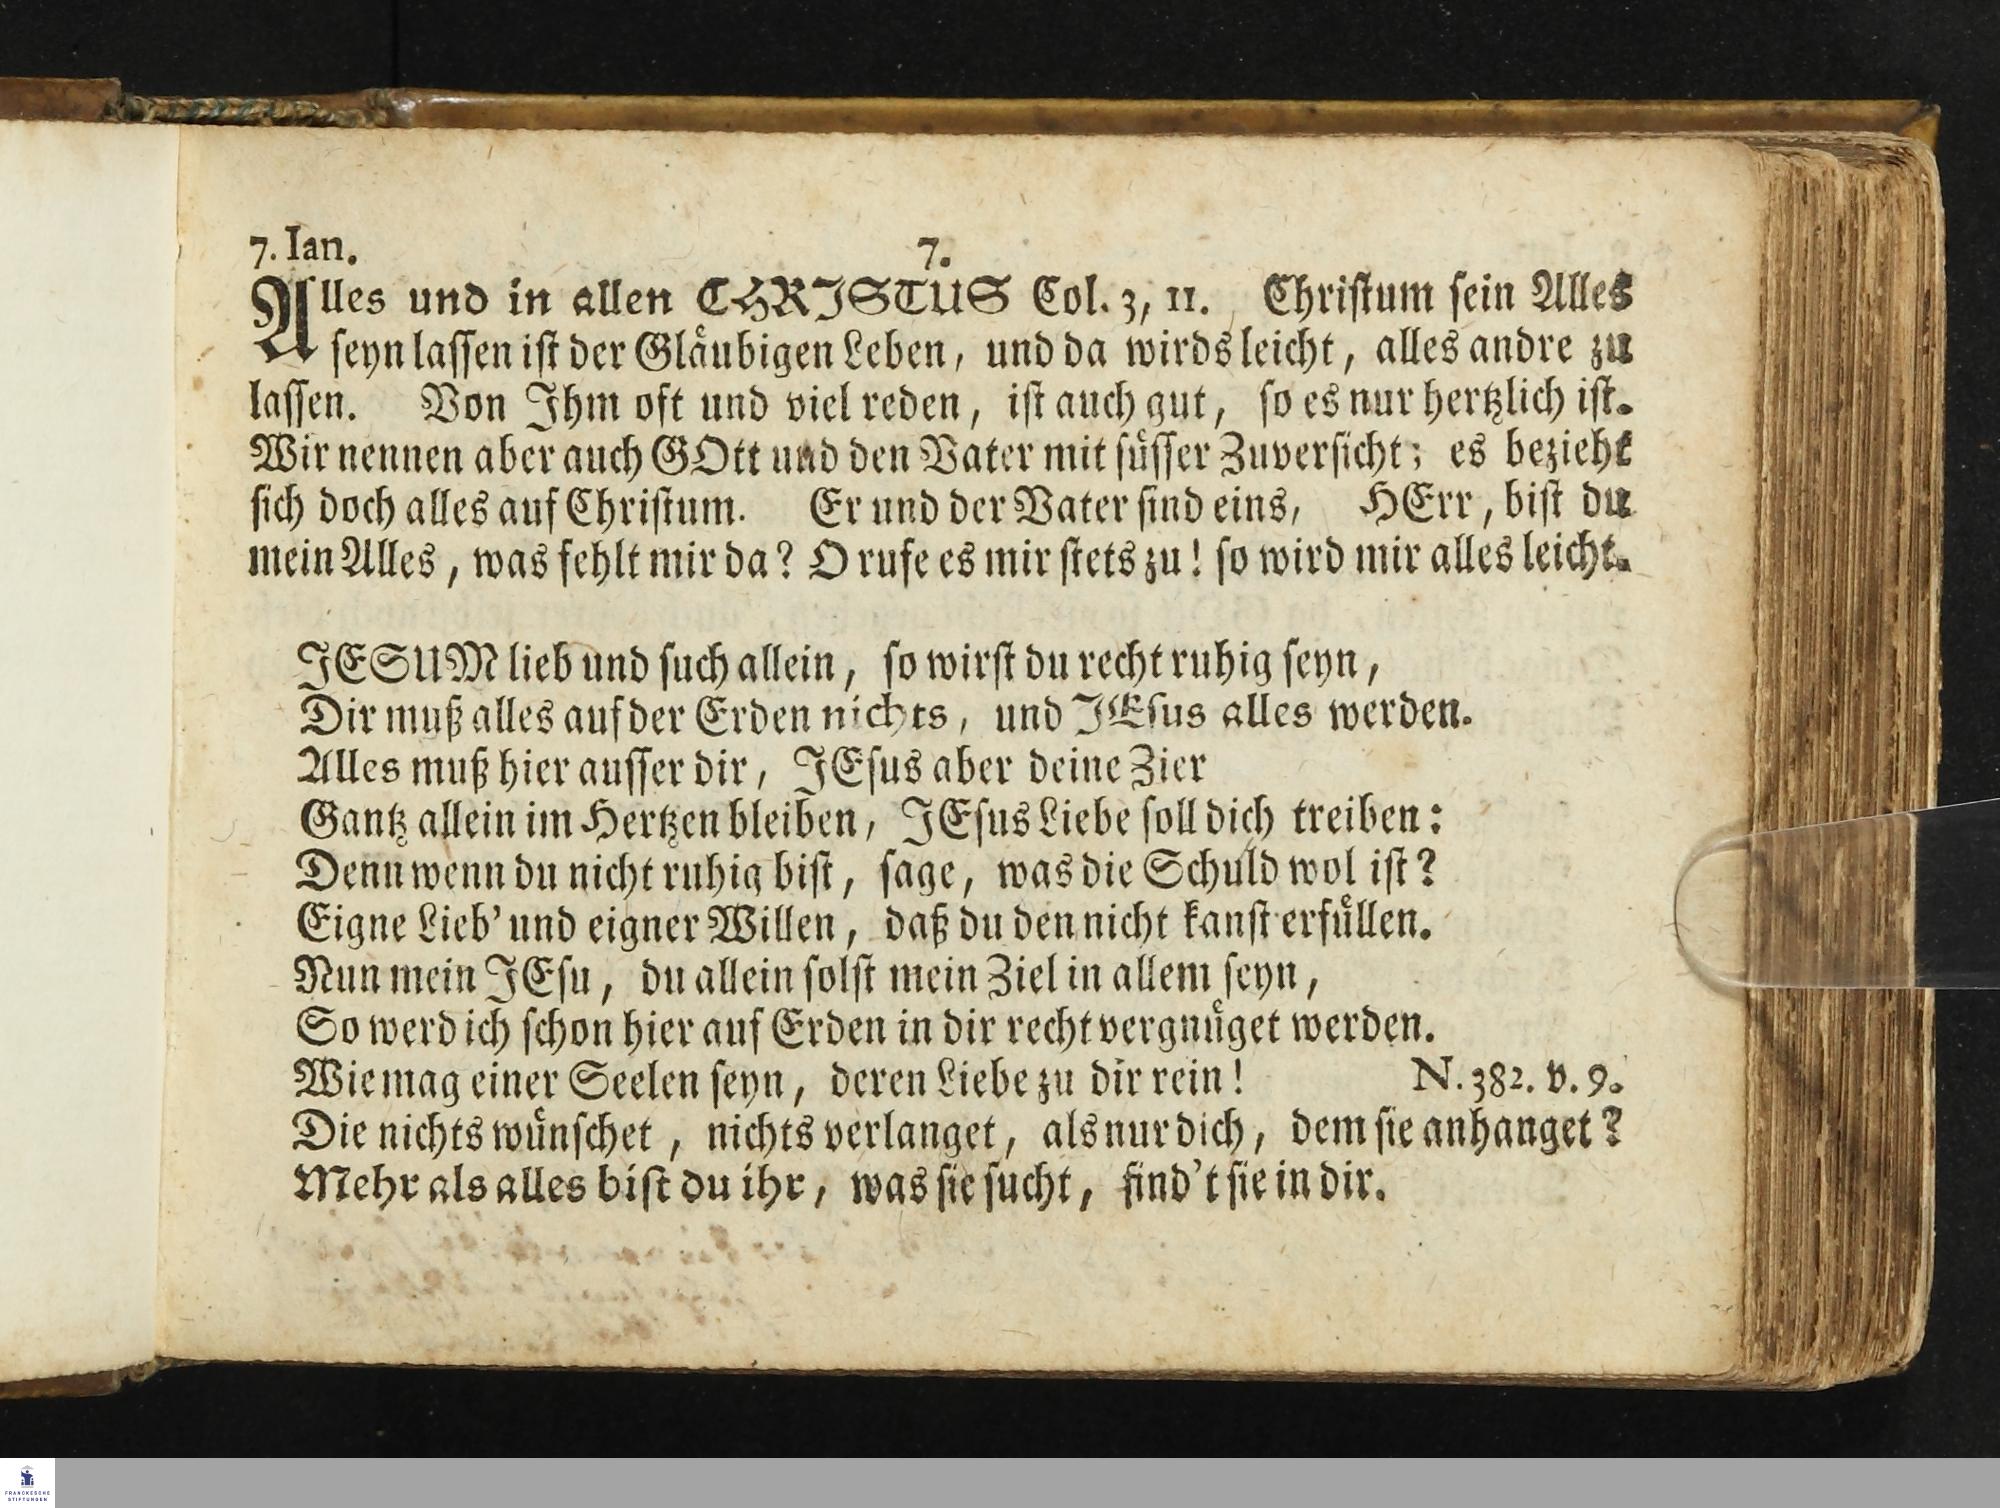 7. Ian.
7.
Alles und in allen CHRISTUS Col. 3, 11. Christum sein Alles
seyn lassen ist der Gläubigen Leben, und da wirds leicht, alles andre zu
lassen. Von Ihm oft und viel reden, ist auch gut, so es nur hertzlich ist.
Wir nennen aber auch GOtt und den Vater mit süsser Zuversicht; es bezieht
sich doch alles auf Christum. Er und der Vater sind eins, HErr, bist du
mein Alles, was fehlt mir da? O rufe es mir stets zu! so wird mir alles leicht.
JESUM lieb und such allein, so wirst du recht ruhig seyn,
Dir muß alles auf der Erden nichts, und JEsus alles werden.
Alles muß hier ausser dir, JEsus aber deine Zier
Gantz allein im Hertzen bleiben, JEsus Liebe soll dich treiben:
Denn wenn du nicht ruhig bist, sage, was die Schuld wol ist?
Eigne Lieb' und eigner Willen, daß du den nicht kanst erfüllen.
Nun mein JEsu, du allein solst mein Ziel in allem seyn,
So werd ich schon hier auf Erden in dir recht vergnüget werden.
Wie mag einer Seelen seyn, deren Liebe zu dir rein! N. 382. v. 9.
Die nichts wünschet, nichts verlanget, als nur dich, dem sie anhanget?
Mehr als alles bist du ihr, was sie sucht, find't sie in dir.
FRANCKESCHE
STIFTUNGEN